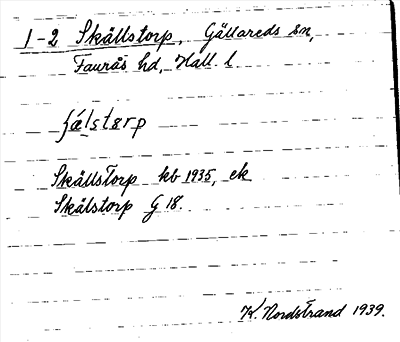 1-2 Skållstorp, Gällareds sn,
Faurås hd, Hall. l.
ʃǽlstərp
Skållstorp kb 1935, ek
Skålstorp G 18.
K. Nordstrand 1939.